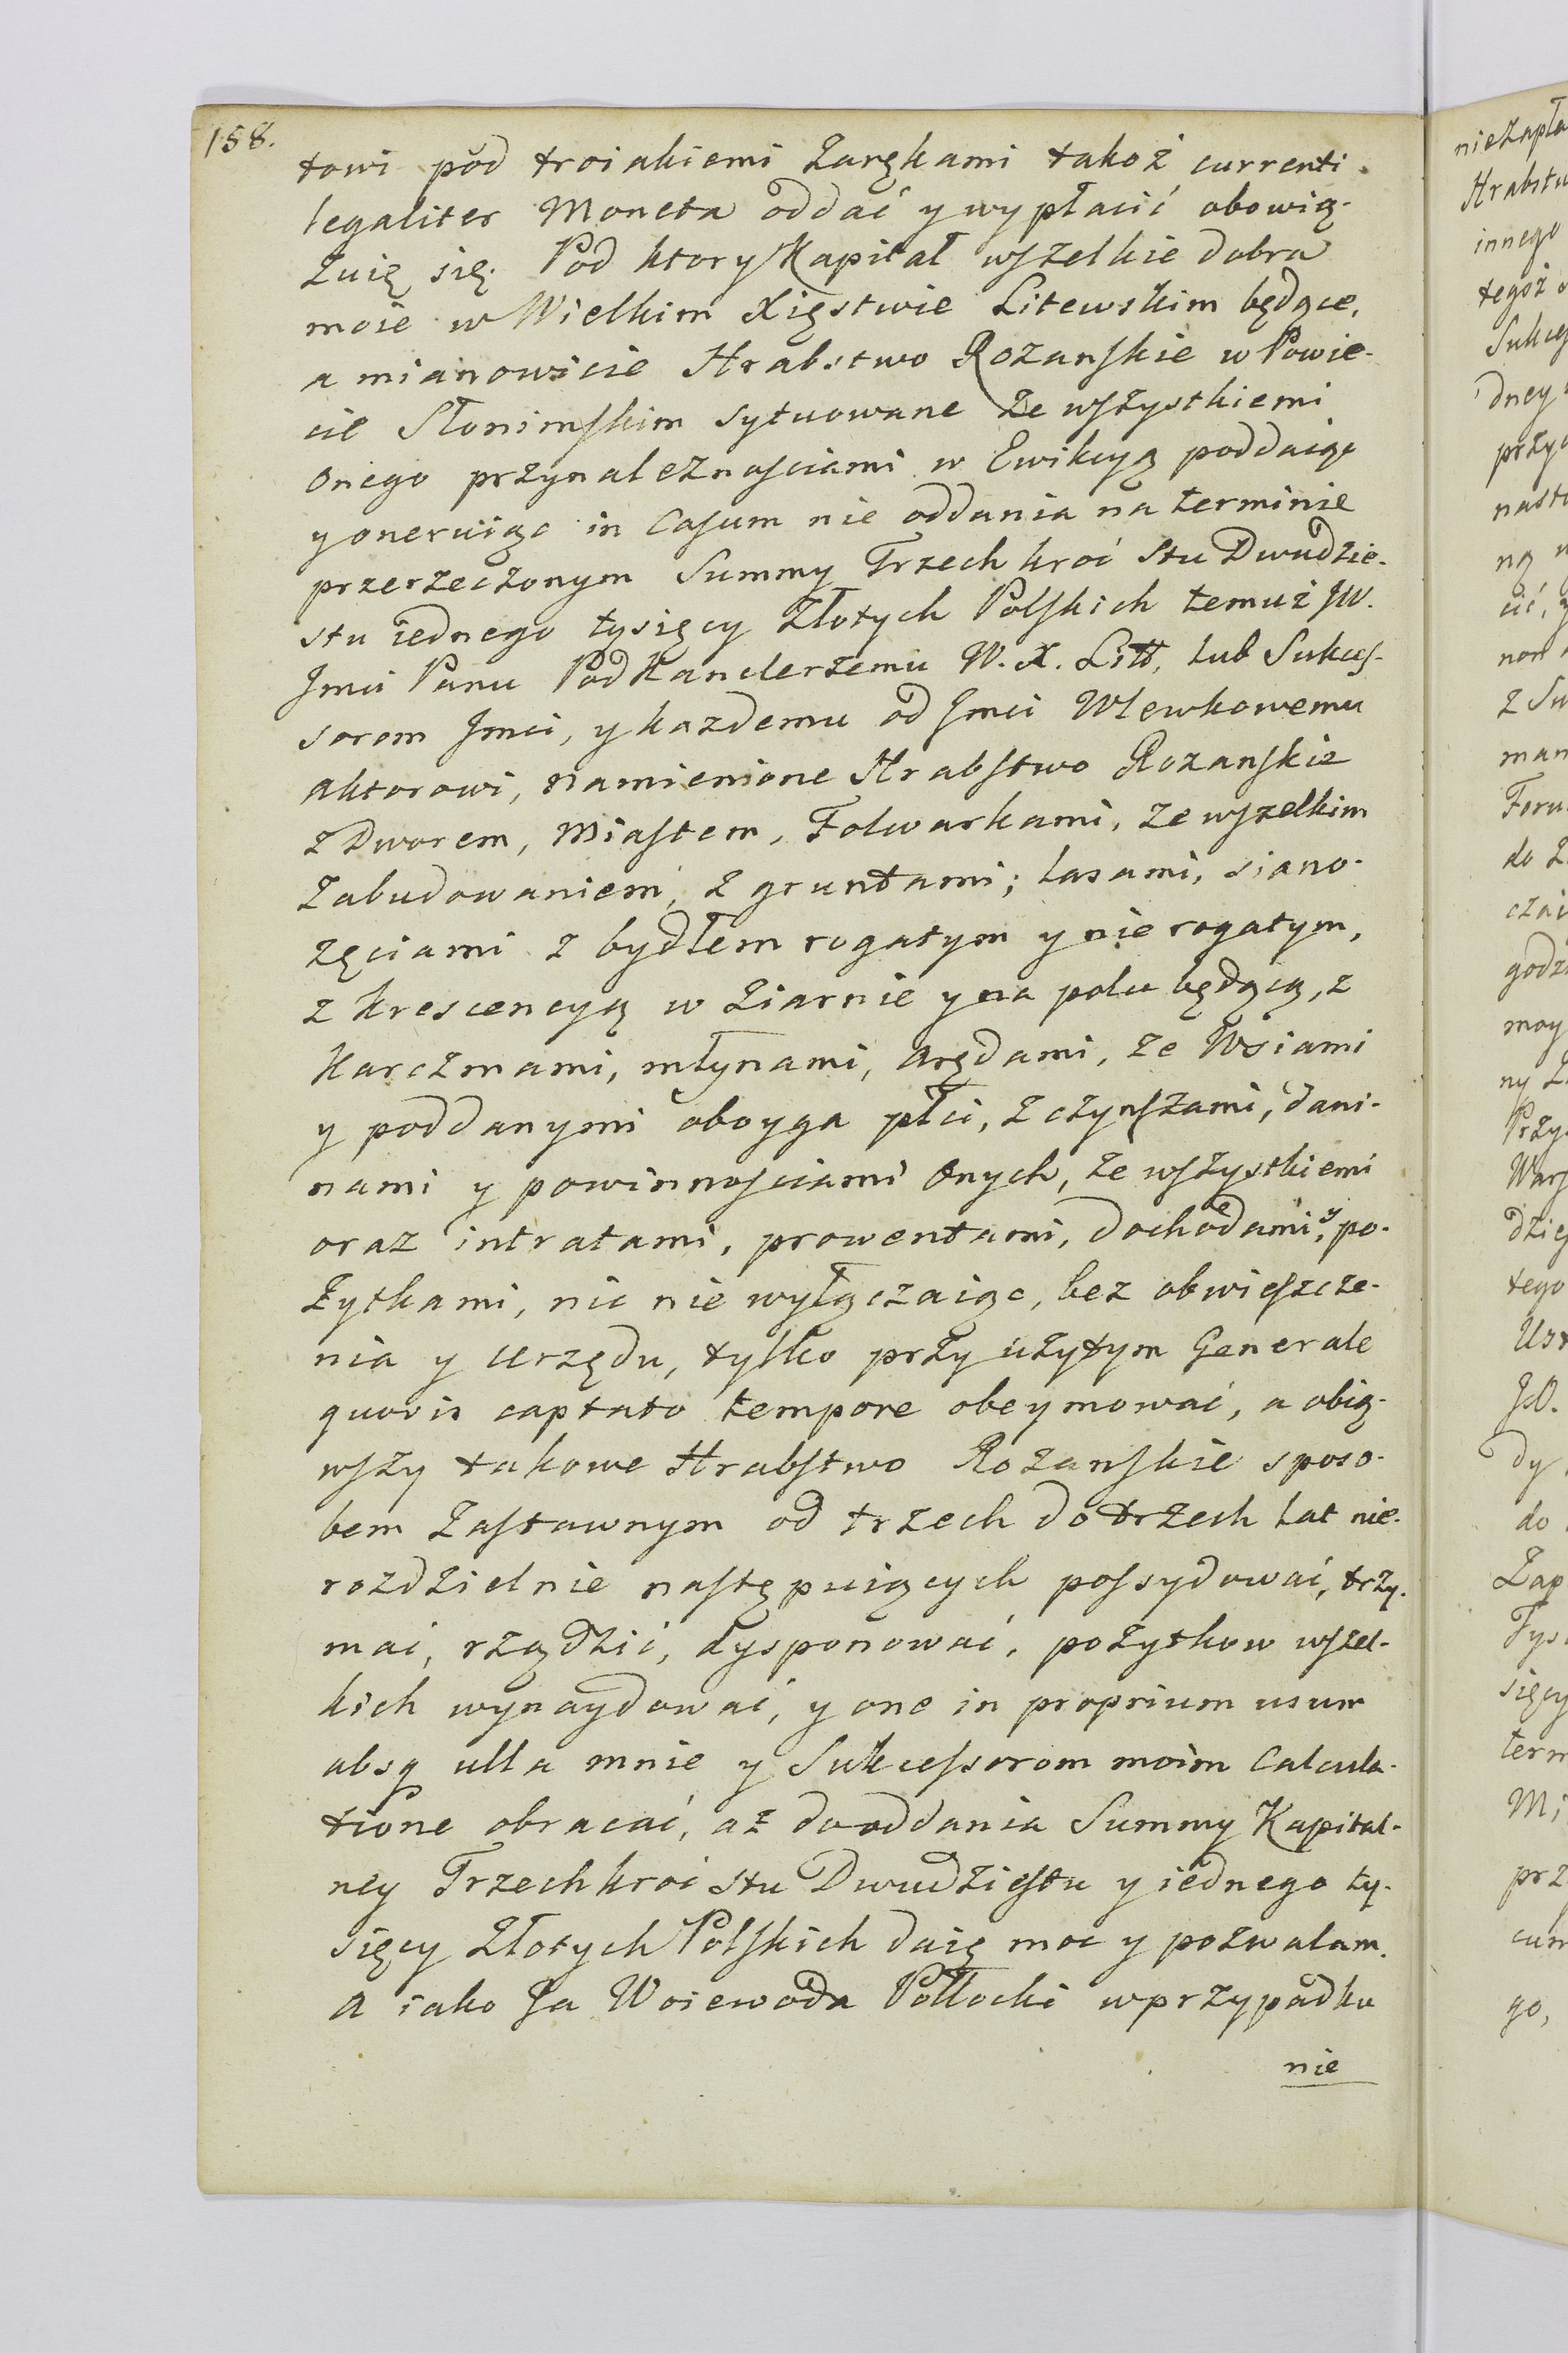 158.
towi pod troiakiemi Zarękami takoż currenti
legaliter Moneta oddać y wypłacić obowią-
zuię się. Pod ktory Kapitał wszelkie dobra
moie w Wielkim Xięstwie Litewskim będące,
a mianowicie Hrabstwo Rozanskie w Powie-
cie Słonimskim sytuowane ze wszystkiemi
onego przynaleznosciami w Ewikcyą poddaiąc
y oneruiąc in Casum nie oddania na terminie
przerzeczonym Summy Trzech kroć Stu Dwudzie-
stu iednego tysięcy Złotych Polskich temuż JW.
Jmci Panu Podkanclerzemu W. X. Litt. lub Sukces-
sorom Jmci, y kazdemu od Jmci Wlewkowemu
aktorowi, namienione Hrabstwo Rozanskie
z Dworem, Miastem, Folwarkami, ze wszelkim
Zabudowaniem, z gruntami; lasami, siano-
zęciami z bydłem rogatym y nie rogatym,
z krescencyą w Ziarnie y na polu będącą, z
Karczmami, młynami, arędami, ze Wsiami
y poddanymi oboyga płci, z czynszami, dani-
nami y powinnosciami onych, ze wszystkiemi
oraz intratami, prowentami, dochodami, y po-
żytkami, nic nie wyłączaiąc, bez obwieszcze-
nia y Urzędu, tylko przy użytym Generale
quovis captato tempore obeymować, a obią-
wszy takowe Hrabstwo Rozanskie sposo-
bem Zastawnym od trzech do trzech lat nie-
rozdzielnie następuiących possydować, trzy-
mać, rządzić, dysponować, pożytkow wszel-
kich wynaydować, y one in proprium usum
absq ulla mnie y Sukcessorom moim Calcula-
tione obracać, aż do oddania Summy Kapital-
ney Trzechkroć stu Dwudziestu y iednego ty-
sięcy Złotych Polskich daię moc y pozwalam.
A iako Ja Woiewoda Połłocki w przypadku
nie
niezapła
Hrabstw
innego
tegoż
Sukces
dney
przy
nast
ną
cić,
non
z Su
man
Foru
do Z
czai
godz
moy
ny
Przy
Wars
dzies
tego
Ust
JO.
dy
do
Zap
Tys
sięcy
term
Mi
prz
cum
go,